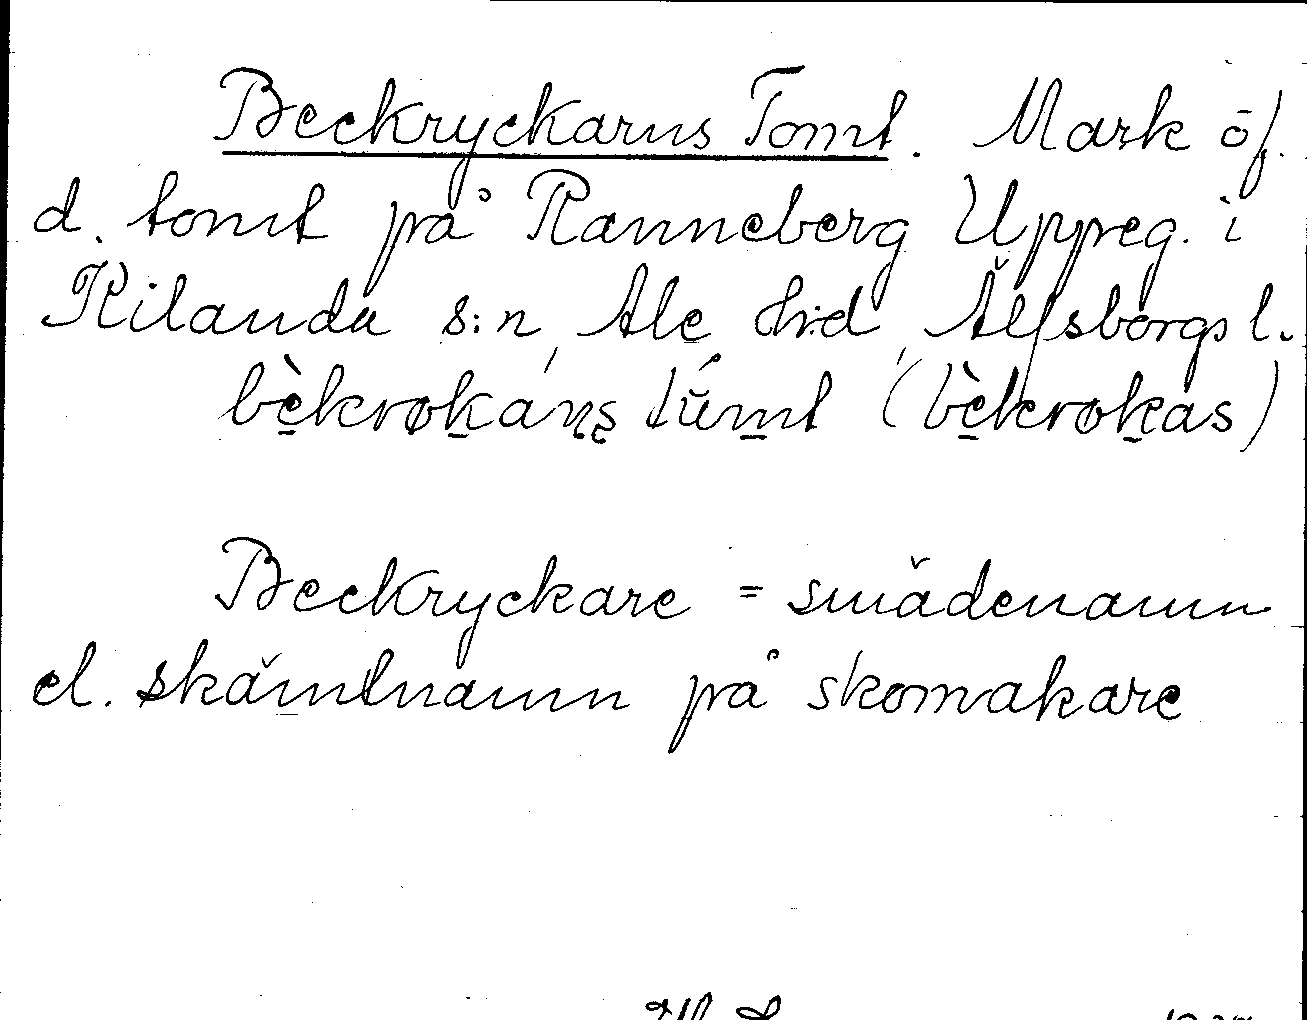 Beckryckarns Tomt. Mark öf.
d. tomt på Ranneberg Uppreg. i
Kilanda s:n, Ale Hd, Älfsborgs l.
Beckryckare = smädenamn
el. skämtnamn på skomakare